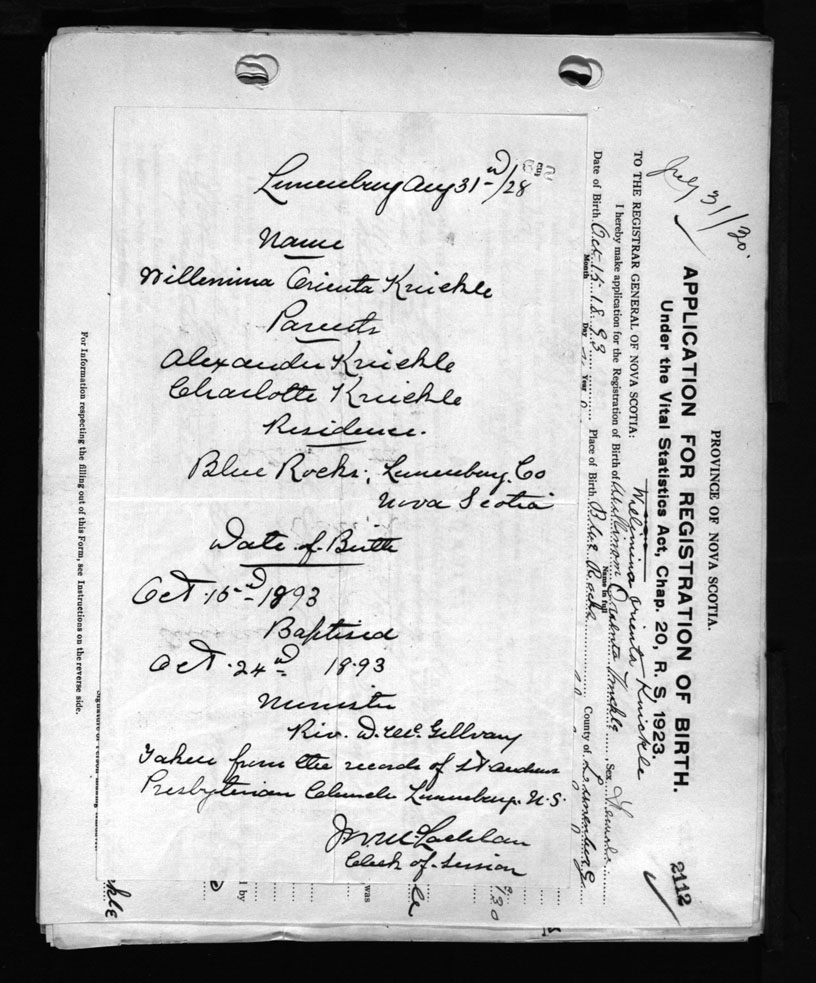 Lunenburg Aug 31/28
Name
Willemina Orienta Knickle
Parents
Alexander Knickle
Charlotte Knickle
Residence.
Blue Rocks, Lunenburg. Co
Nova Scotia
Date of Birth
Oct. 15 1893
Baptised
Oct. 24 1893
Minister
Rev. D. Mc. Gillvary
Taken from the records of St Andrews
Presbyterian Church Lunenburg. N.S.
McLachlan
Clerk of Session
July 31/30.
PROVINCE OF NOVA SCOTIA.
APPLICATION FOR REGISTRATION OF BIRTH.
2112
Under the Vital Statistics Act, Chap. 20, R. S. 1923.
Orienta Knickle
TO THE REGISTRAR GENERAL OF NOVA SCOTIA:
I hereby make application for the Registration of Birth of Knickle Sex Female
Name in full
Date of Birth Oct. 15 1893 Place of Birth Blue Rocks County of Lunenburg
Month Day Year
was
l by
For Information respecting the filling out of this Form, see Instructions on the reverse side.